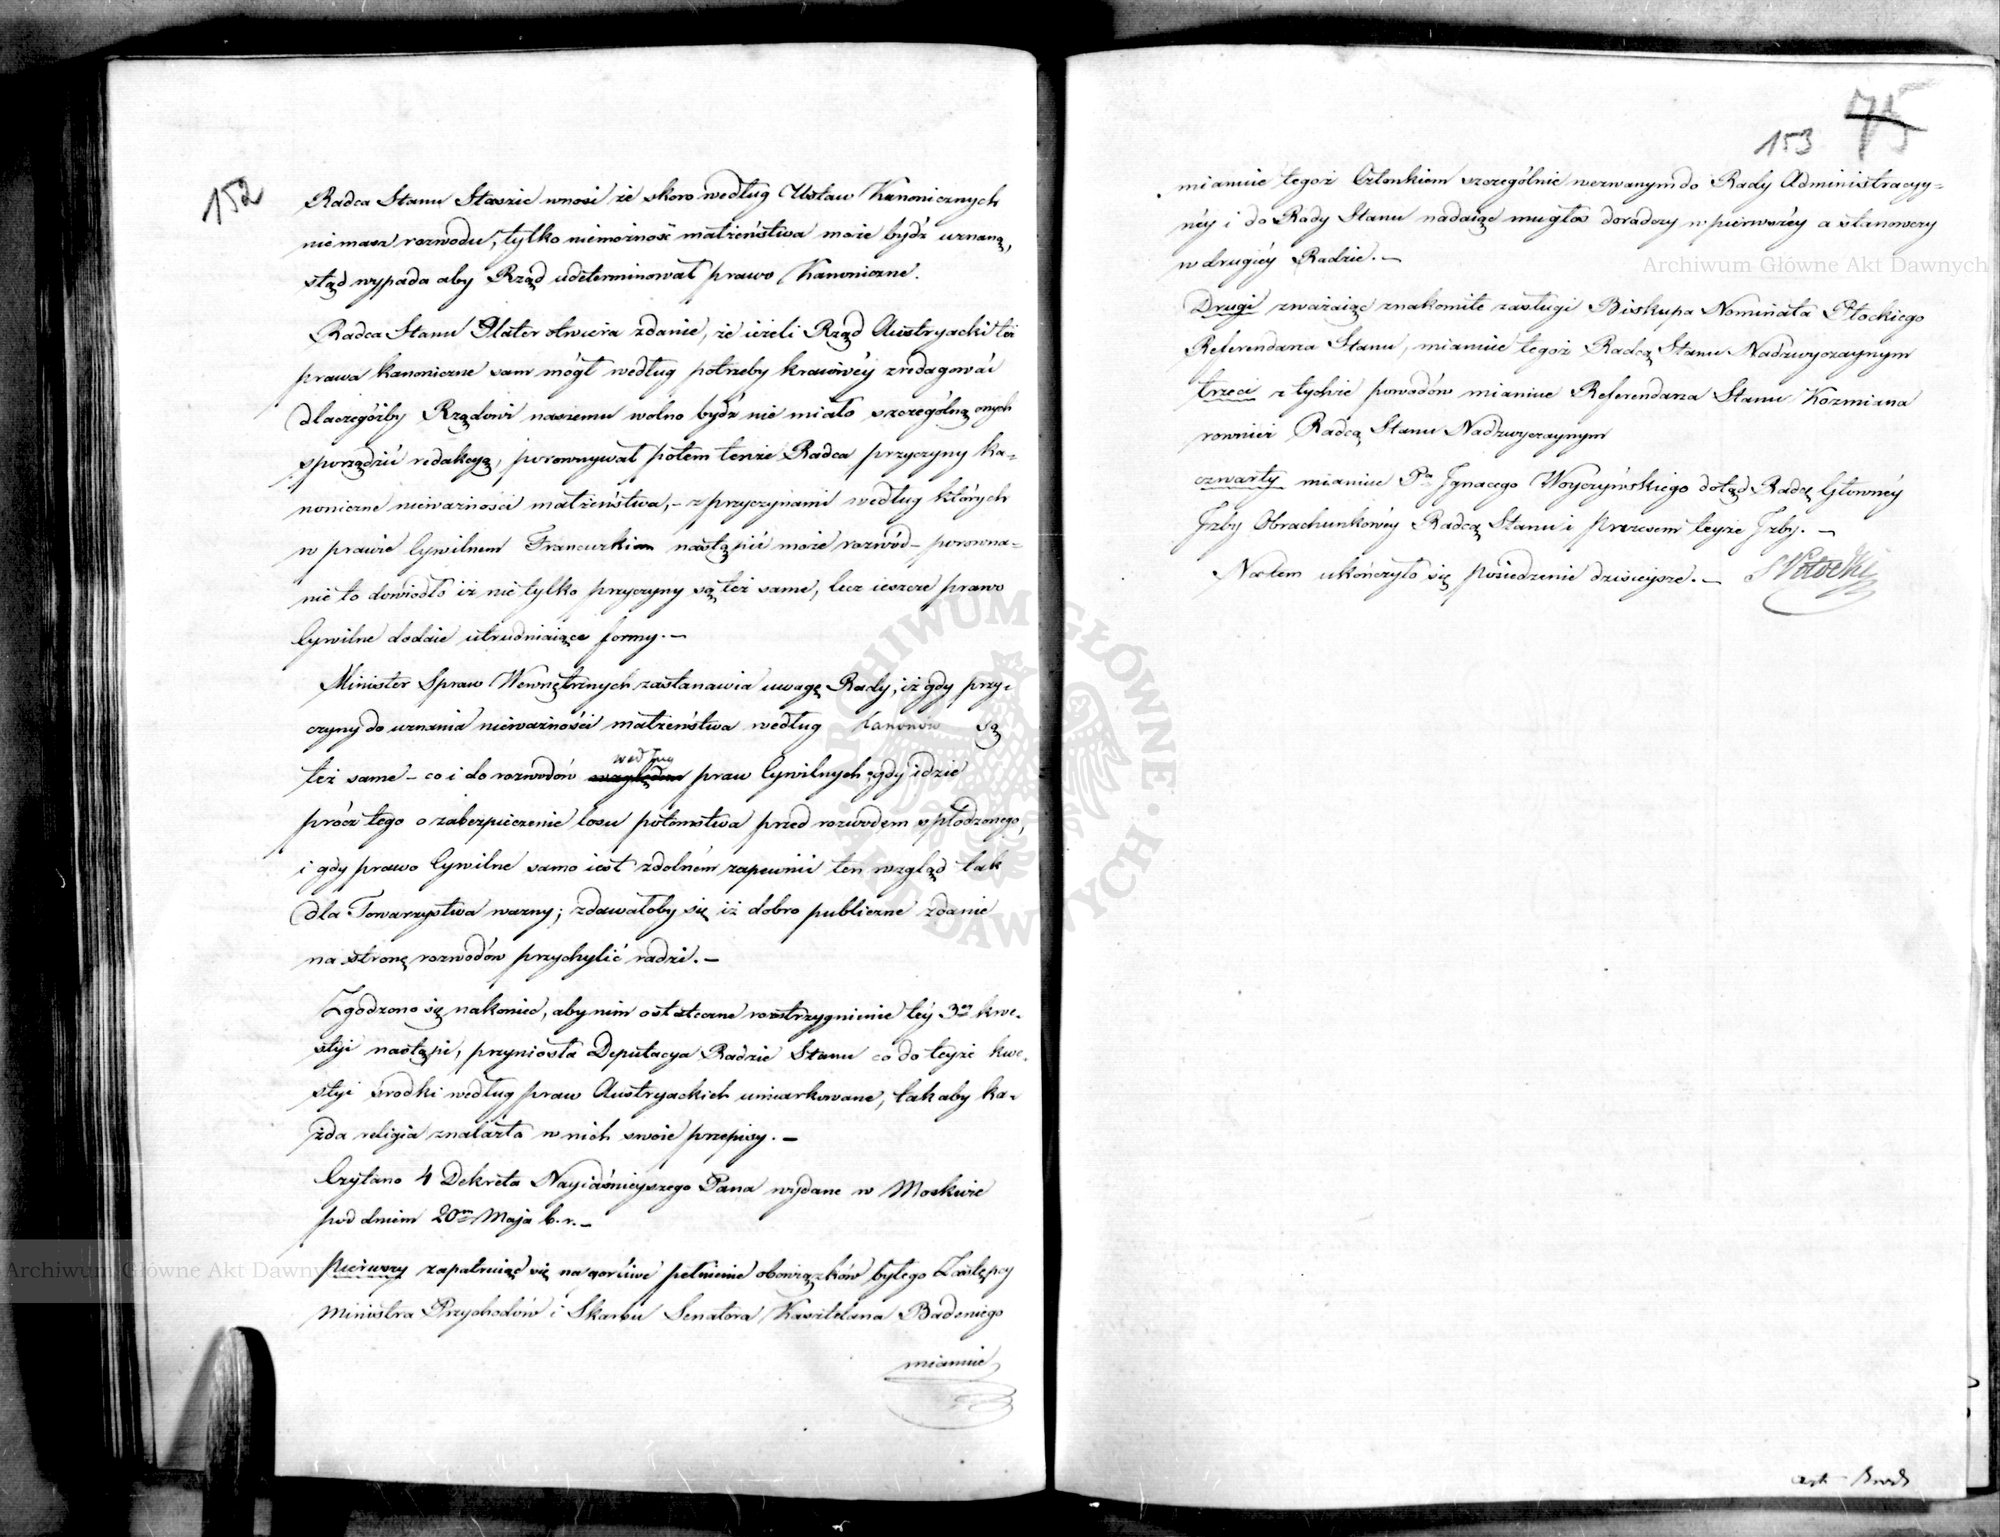 152
Radca Stanu Staszic wnosi że skoro według Ustaw Kanonicznych
niemasz rozwodu, tylko niemożność małżeństwa może bydź uznaną,
stąd wypada aby Rząd udeterminował prawo Kanoniczne.
Radca Stanu Plater otwiera zdanie, że ieżeli Rząd Austryacki też
prawa kanoniczne sam mógł według potrzeby kraiowéy zredagować
dlaczegóżby Rządowi naszemu wolno bydź nie miało szczególną onych
sporządzić redakcyą, porownywał potem tenże Radca przyczyny ka=
noniczne nieważności małżeństwa, – z przyczynami według których
w prawie Cywilnem Francuzkiem nastąpić może rozwód – porowna=
nie to dowiodło iż nie tylko przyczyny są też same, lecz ieszcze prawo
Cywilne dodaie utrudniaiące formy. –
Minister Spraw Wewnętrznych zastanawia uwagę Rady, iż gdy przy=
czyny do uznania nieważności małżeństwa według kanonów są
też same – co i do rozwodów według praw Cywilnych, gdy idzie
prócz tego o zabezpieczenie losu potomstwa przed rozwodem spłodzonego,
i gdy prawo Cywilne samo iest zdolném zapewnić ten wzgląd tak
dla Towarzystwa ważny; zdawałoby się iż dobro publiczne zdanie
na stronę rozwodów przychylić radzi. –
Zgodzono się nakoniec, aby nim ostateczne rozstrzygnienie téy 3ey kwe=
styi nastąpi, przyniosła Deputacya Radzie Stanu co do teyże kwe=
styi środki według praw Austryackich umiarkowane, tak aby ka=
żda religia znalazła w nich swoie przepisy. –
Czytano 4 Dekreta Nayiaśnieyszego Pana wydane w Moskwie
pod dniem 20m Maja b. r. –
Pierwszy zapatruiąc się na gorliwe pełnienie obowiązków byłego Zastępcy
Ministra Przychodów i Skarbu Senatora Kasztelana Badeniego
mianuie
153 75
mianuie tegoż Członkiem szczególnie wezwanym do Rady Administracyy=
néy i do Rady Stanu nadaiąc mu głos doradczy w pierwszéy a stanowczy
w drugiéy Radzie. –
Drugi zważaiąc znakomite zasługi Biskupa Nominata Płockiego
Referendarza Stanu, mianuie tegoż Radcą Stanu Nadzwyczaynym
trzeci z tychże powodów mianuie Referendarza Stanu Kozmiana
rownież Radcą Stanu Nadzwyczaynym
czwarty mianuie Pa Ignacego Woyczyńskiego dotąd Radcę Głownéy
Izby Obrachunkowéy Radcą Stanu i Prezesem teyże Izby. –
Na tem ukończyło się posiedzenie dzisieysze. – S Potocki
Archiwum Główne Akt Dawnych
Archiwum Główne Akt Dawnych
ARCHIWUM GŁÓWNE AKT DAWNYCH